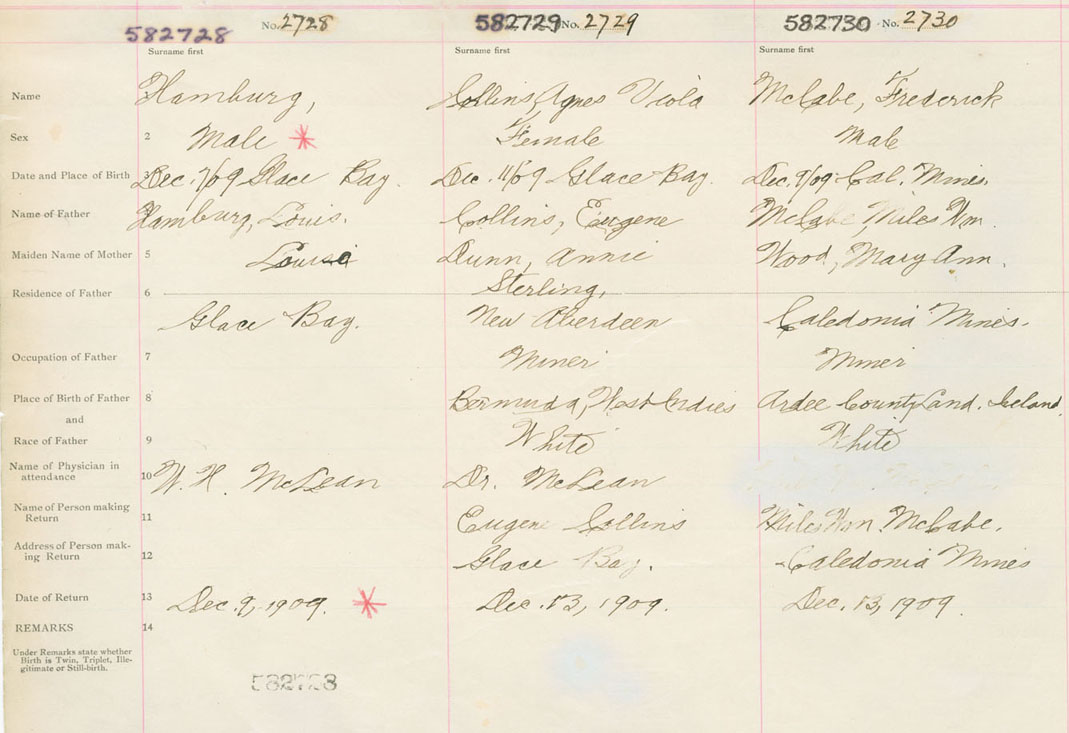 582728 No. 2728 582729 No. 2729 582730 No. 2730
Surname first Surname first Surname first
Name 1 Hamburg, Collins, Agnes Viola McCabe, Frederick
Sex 2 Male * Female Male
Date and Place of Birth 3 Dec. 7/09 Glace Bay. Dec. 11/09 Glace Bay. Dec. 9/09 Cal. Mines.
Name of Father 4 Hamburg, Louis. Collins, Eugene McCabe, Miles Wm.
Maiden Name of Mother 5 Dunn, Annie Wood, Mary Ann.
Residence of Father 6 Sterling,
Glace Bay. New Aberdeen Caledonia Mines.
Occupation of Father 7 Miner Miner
Place of Birth of Father 8 Bermuda, West Indies Ardee County Ireland.
and
Race of Father 9 White White
Name of Physician in
attendance 10 W. H. McLean Dr. McLean
Name of Person making
Return 11 Eugene Collins Miles Wm. McCabe.
Address of Person mak-
ing Return 12 Glace Bay. Caledonia Mines
Date of Return 13 Dec. 9, 1909. * Dec. 13, 1909. Dec. 13, 1909.
REMARKS 14
Under Remarks state whether
Birth is Twin, Triplet, Ille-
gitimate or Still-birth.
582728